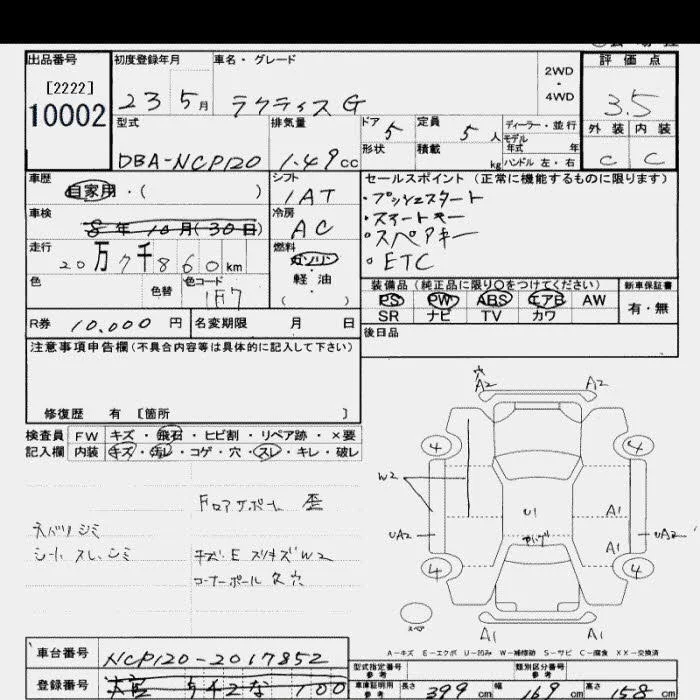 出品番号
[2222]
10002
初度登録年月
23 5月
車名・グレード
ラクティス G
2WD
・
4WD
評価点
3.5
外装 内装
C C
型式
DBA-NCP120
排気量
1.49cc
ドア 5
定員 5人
形状
積載 kg
ディーラー・並行
モデル年式 年
ハンドル 左・右
車歴
自家用・( )
シフト
IAT
車検
8年10月(30日)
冷房
AC
走行
20万7千860km
燃料
ガソリン
・
軽油
( )
色
色替
色コード
1F7
R券 10,000円
名変期限 月 日
セールスポイント(正常に機能するものに限ります)
・プッシュスタート
・スマートキー
・スペアキー
・ETC
装備品(純正品に限り○をつけてください)
PS PW ABS エアB AW
SR ナビ TV カワ
新車保証書
有・無
後日品
注意事項申告欄(不具合内容等は具体的に記入して下さい)
修復歴 有 [箇所 ]
検査員記入欄
FW キズ・飛石・ヒビ割・リペア跡・×要
内装 キズ・汚レ・コゲ・穴・スレ・キレ・破レ
フロアサポート 歪
ネバリ シミ
シート スレ、シミ
キズ・E スリキズ W2
コーナーポール 欠 穴
穴
A2 A2
4 4
W2
U1
A1
UA2 UA2
A1
4 4
スペア
A1 A1
A-キズ E-エクボ U-凹み W-補修跡 S-サビ C-腐食 XX-交換済
車台番号
NCP120-2017852
登録番号
542 な 100
型式指定番号
参考
類別区分番号
参考
車庫証明用
参考
長さ 399cm
幅 169cm
高さ 158cm